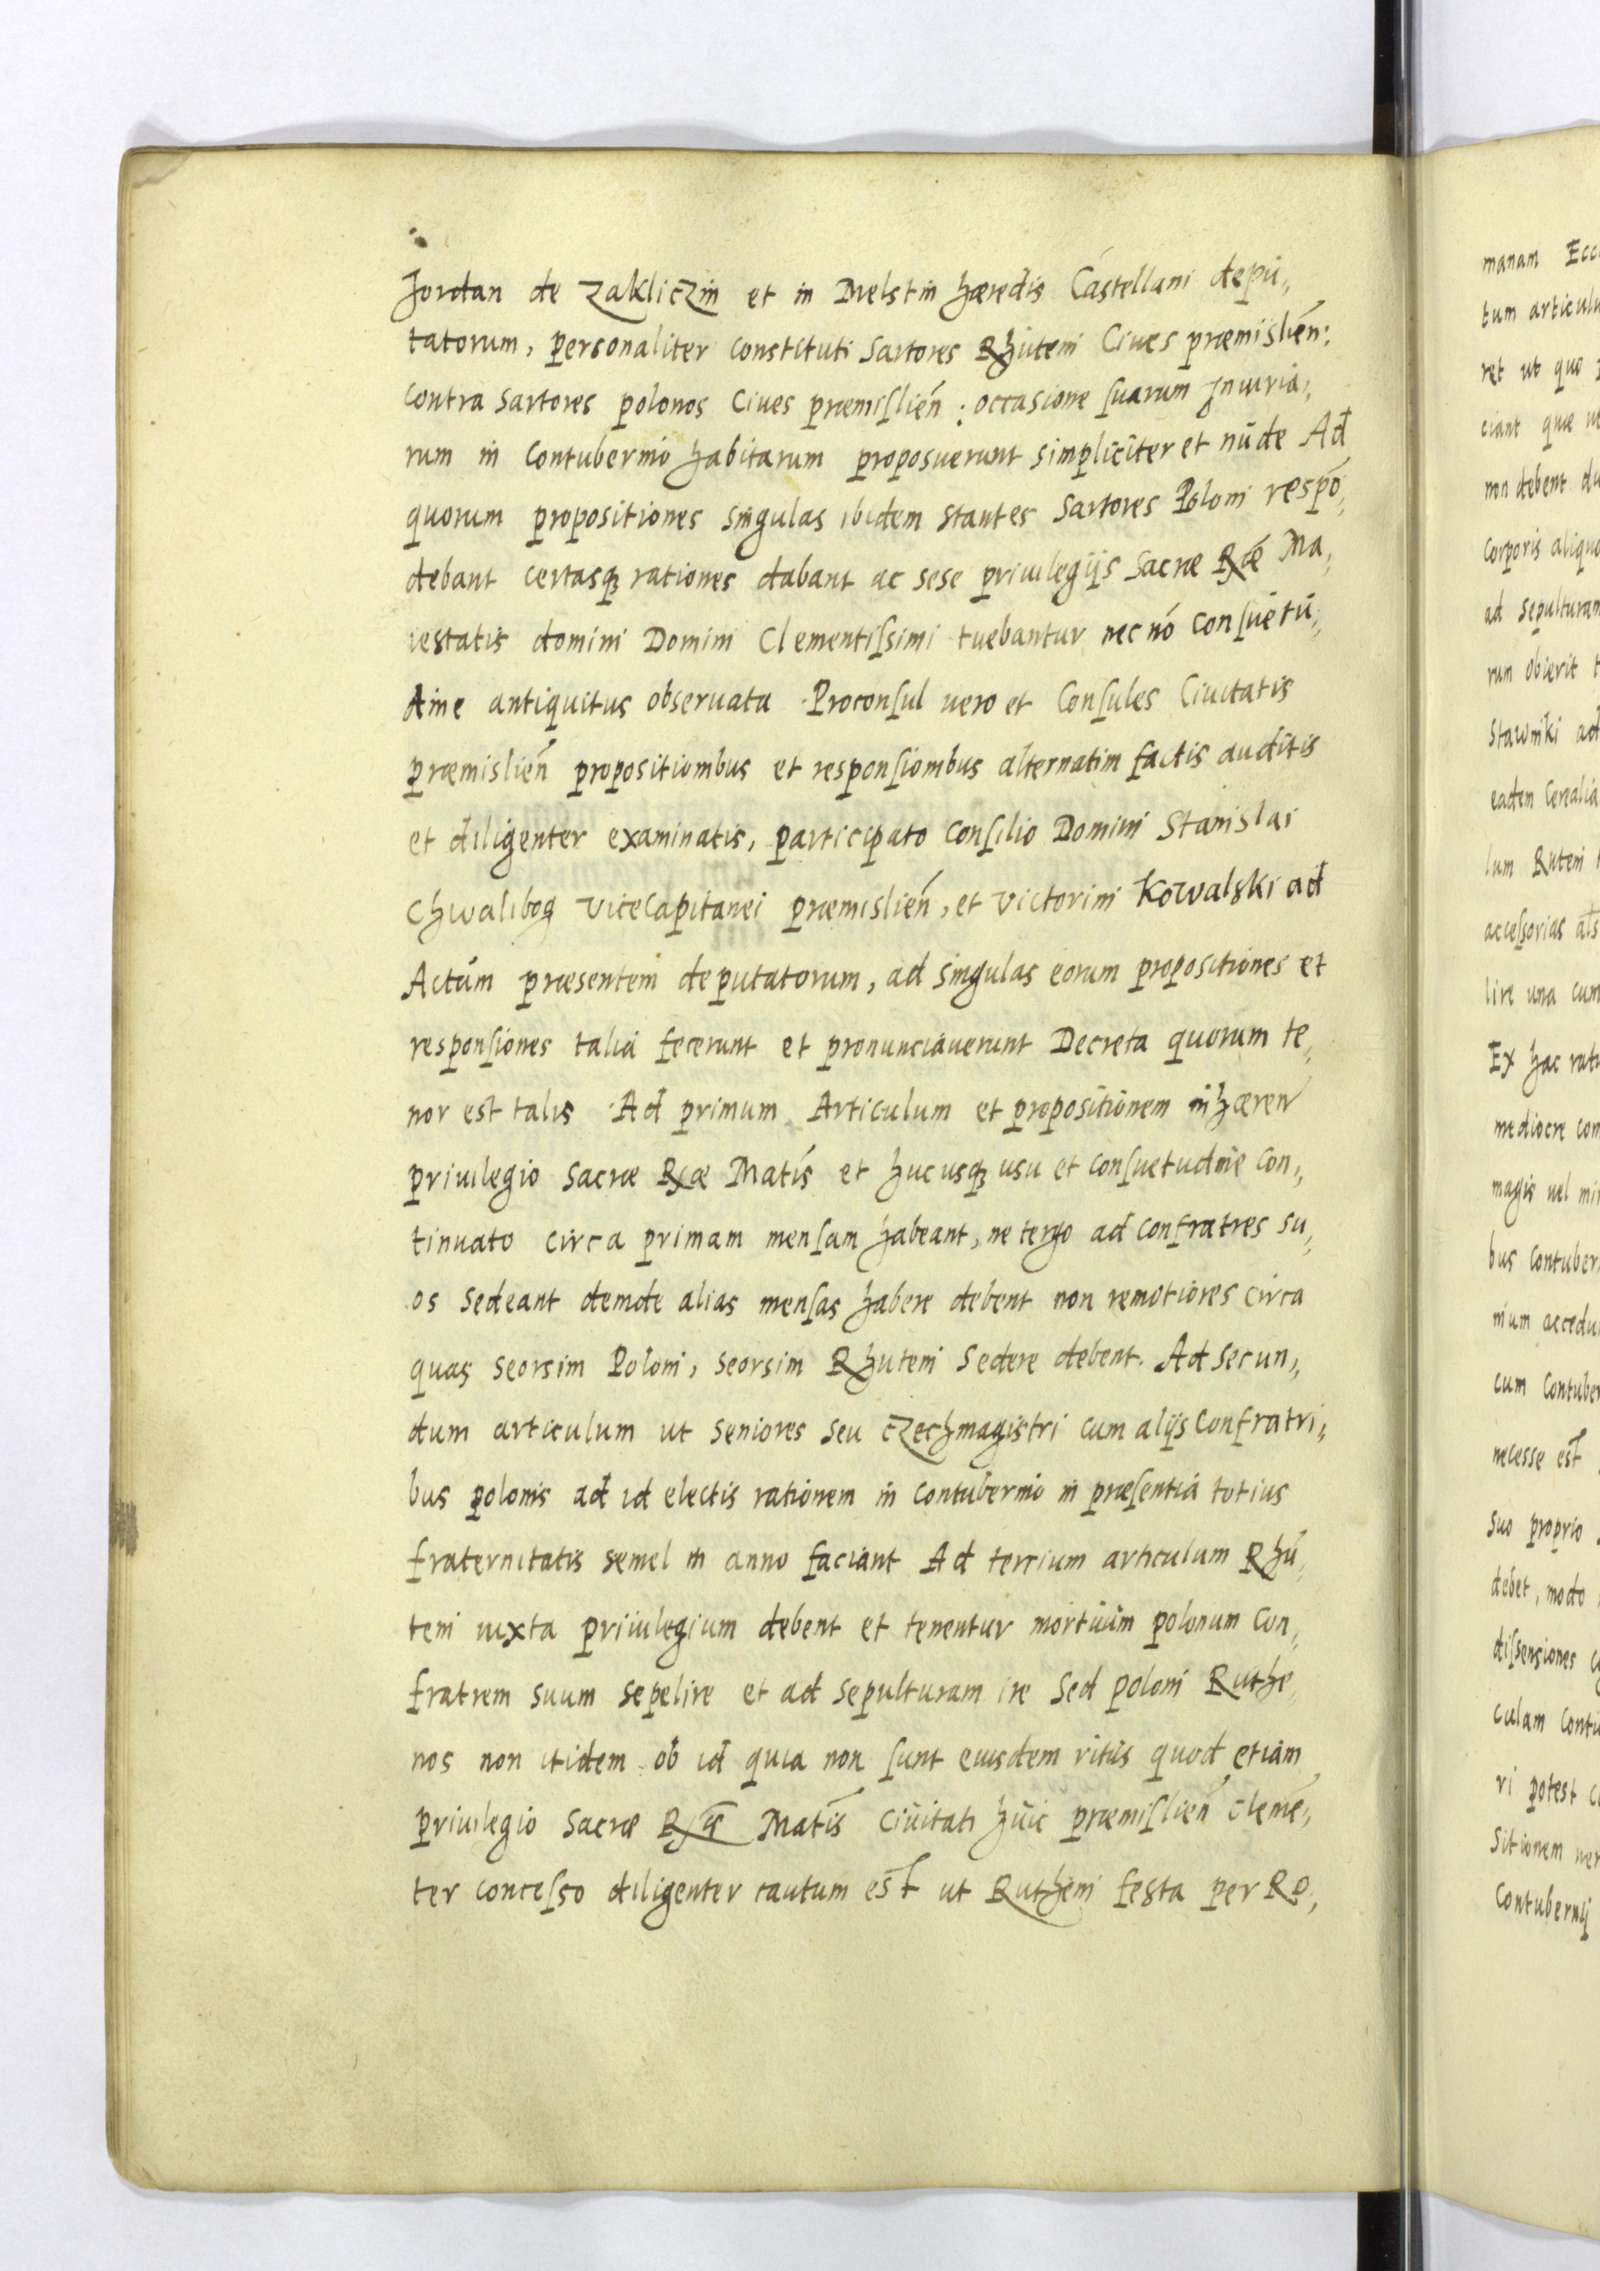 Jordan de Zakliczin et in Melstin hæredis Castellani depu,
tatorum, personaliter constituti Sartores Rhuteni Ciues præmislien:
contra Sartores polonos Ciues præmislien: occasione suarum Iniuria,
rum in Contubernio habitarum proposuerunt simpliciter et nude Ad
quorum propositiones singulas ibidem stantes Sartores Poloni respō,
debant certasq rationes dabant ac sese priuilegijs Sacræ Ræ Ma,
iestatis domini Domini Clementissimi tuebantur necnō consuetu,
dine antiquitus obseruata. Proconsul uero et Consules Ciuitatis
præmislień propositionibus et responsionibus alternatim factis auditis
et diligenter examinatis, participato consilio Domini Stanislai
Chwalibog Vicecapitanei præmislień, et Victorini Kowalski ad
Actum præsentem deputatorum, ad singulas eorum propositiones et
responsiones talia fecerunt et pronunciauerunt Decreta quorum te,
nor est talis. Ad primum Articulum et propositionem inhæren
priuilegio Sacræ Ræ Matis et hucusq usu et consuetudine con,
tinuato circa primam mensam habeant, ne tergo ad confratres su,
os sedeant deinde alias mensas habere debent non remotiores circa
quas seorsim Poloni, seorsim Rhuteni Sedere debent. Ad secun,
dum articulum ut seniores seu Czechmagistri cum alijs Confratri,
bus polonis ad id electis rationem in contubernio in præsentia totius
fraternitatis semel in anno faciant Ad tercium articulum Rhu,
teni iuxta priuilegium debent et tenentur mortuum polonum Con,
fratrem suum sepelire et ad sepulturam ire Sed poloni Ruthe,
nos non itidem ob id quia non sunt eiusdem ritus quod etiam
priuilegio Sacræ Ræ Matis Ciuitati huic præmislień clemē,
ter concesso diligenter cautum est ut Rutheni festa per Ro,

manam Ecc
tum articulu
ret ut quo
ciant quæ
non debent
Corporis aliquo
ad sepulturam
rum obierit
Stawniki ad
eadem Cerealia
lum Ruteni
accessorias als
lire una cum
Ex hac
mediocre
magis uel
bus Contuber
nium accedu
cum Contuber
necesse est
suo proprio
debet, modo
dissensiones
culam
ri potest
Sitionem
Contubernij